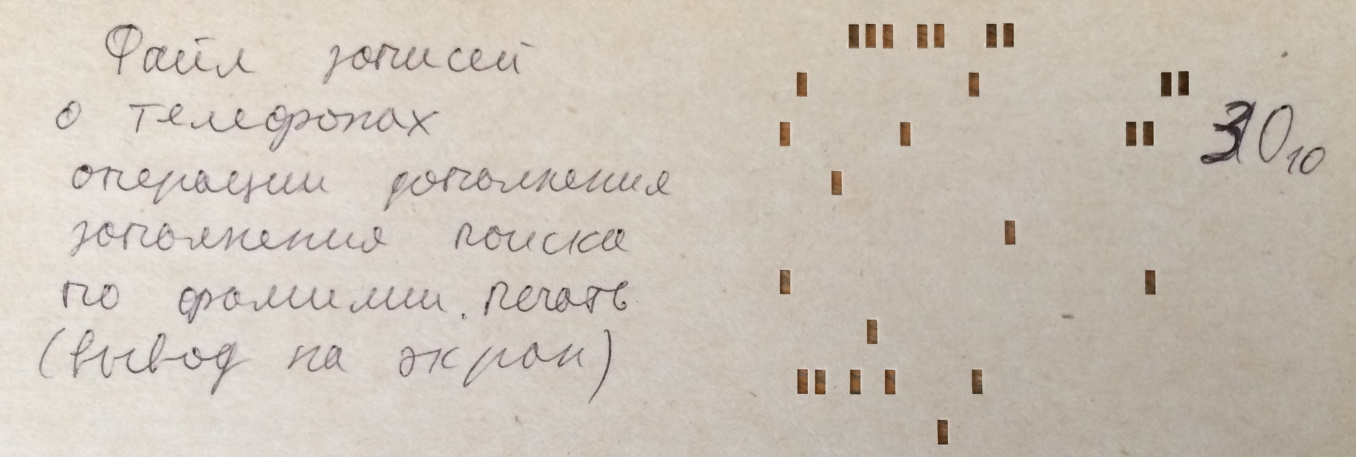 Файл записей
о телефонах
операции дополнения
заполнения поиска
по фамилии. печать
(вывод на экран)
30₁₀